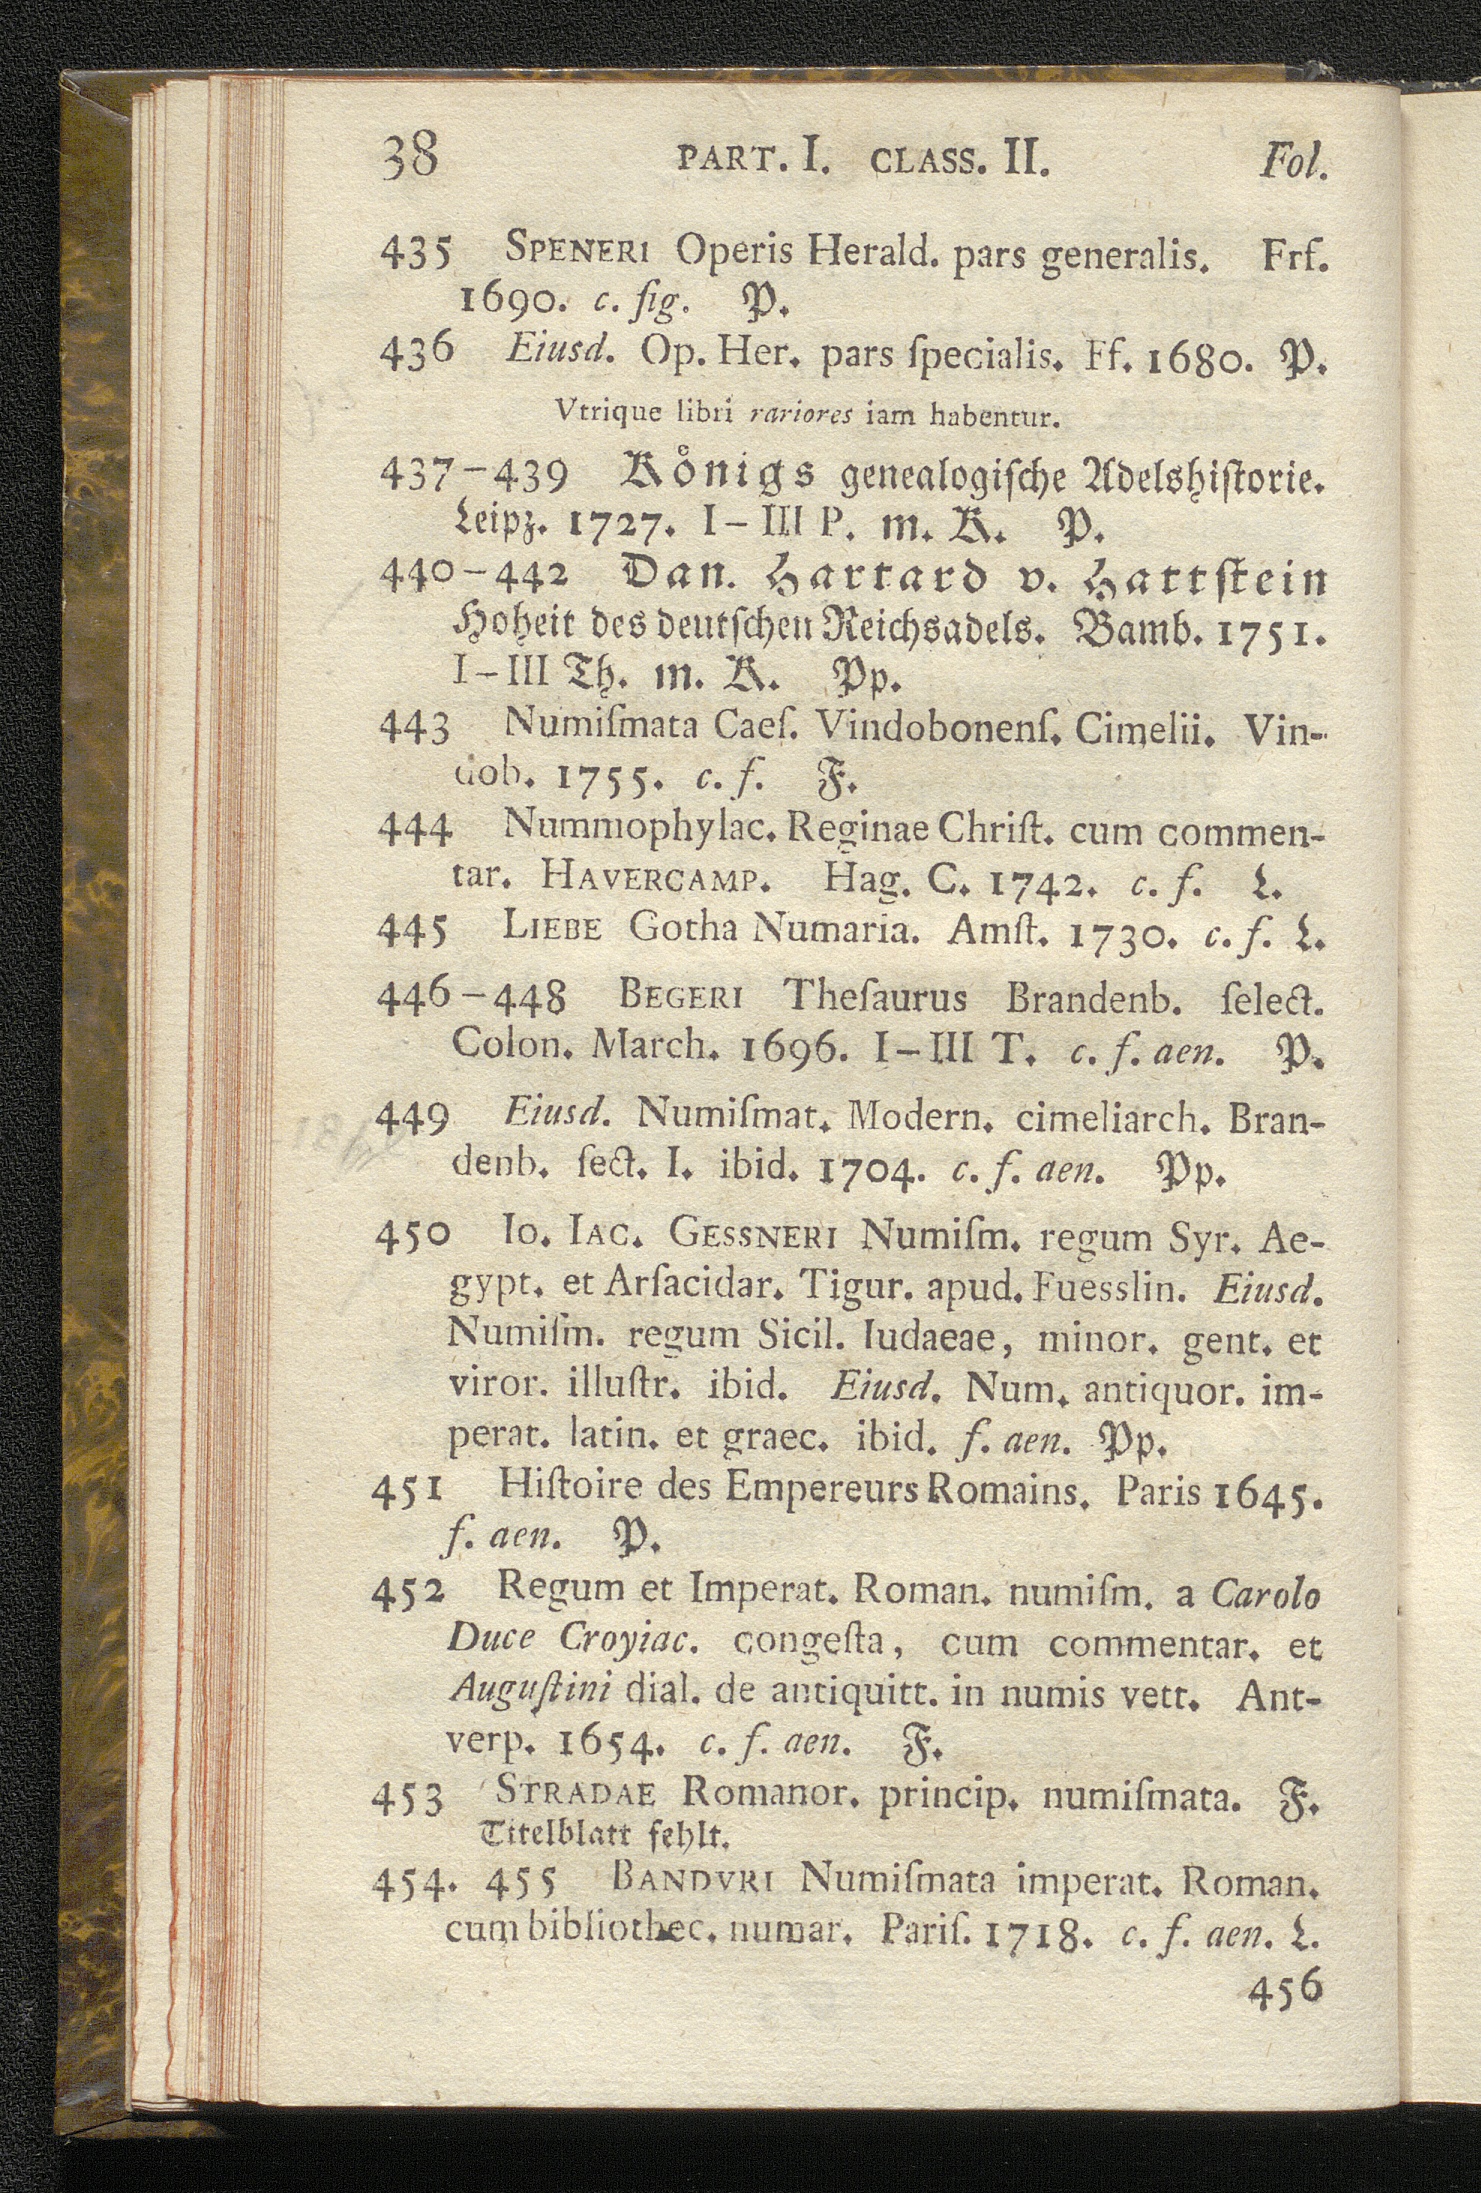 38 PART. I. CLASS. II. Fol.
435 SPENERI Operis Herald. pars generalis. Frf.
1690. c. fig. P.
436 Eiusd. Op. Her. pars ſpecialis. Ff. 1680. P.
Vtrique libri rariores iam habentur.
437–439 Koͤnigs genealogiſche Adelshiſtorie.
Leipz. 1727. I–III P. m. K. P.
440–442 Dan. Hartard v. Hattſtein
Hoheit des deutſchen Reichsadels. Bamb. 1751.
I–III Th. m. K. Pp.
443 Numiſmata Caeſ. Vindobonenſ. Cimelii. Vin-
dob. 1755. c. f. F.
444 Nummophylac. Reginae Chriſt. cum commen-
tar. HAVERCAMP. Hag. C. 1742. c. f. L.
445 LIEBE Gotha Numaria. Amſt. 1730. c. f. L.
446–448 BEGERI Theſaurus Brandenb. ſelect.
Colon. March. 1696. I–III T. c. f. aen. P.
449 Eiusd. Numiſmat. Modern. cimeliarch. Bran-
denb. ſect. I. ibid. 1704. c. f. aen. Pp.
450 IO. IAC. GESSNERI Numiſm. regum Syr. Ae-
gypt. et Arſacidar. Tigur. apud. Fuesslin. Eiusd.
Numiſm. regum Sicil. Iudaeae, minor. gent. et
viror. illuſtr. ibid. Eiusd. Num. antiquor. im-
perat. latin. et graec. ibid. f. aen. Pp.
451 Hiſtoire des Empereurs Romains. Paris 1645.
f. aen. P.
452 Regum et Imperat. Roman. numiſm. a Carolo
Duce Croyiac. congeſta, cum commentar. et
Auguſtini dial. de antiquitt. in numis vett. Ant-
verp. 1654. c. f. aen. F.
453 STRADAE Romanor. princip. numiſmata. F.
Titelblatt fehlt.
454. 455 BANDVRI Numiſmata imperat. Roman.
cum bibliothec. numar. Pariſ. 1718. c. f. aen. L.
456